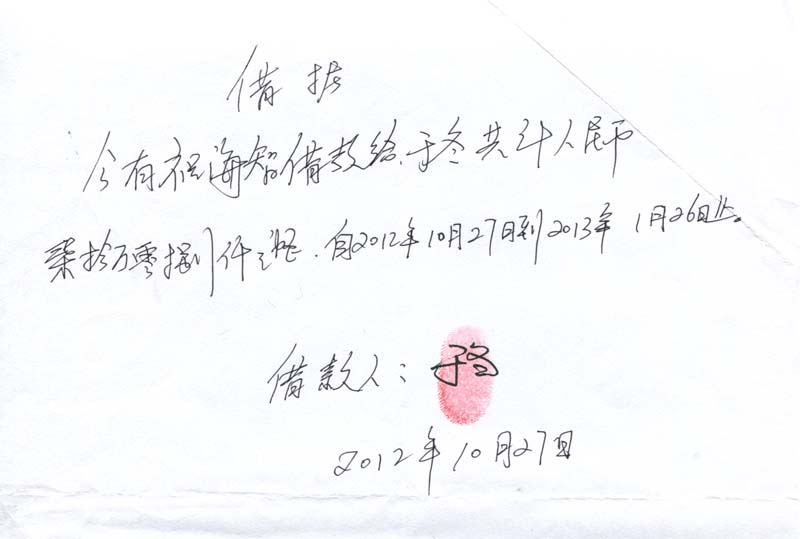 借据
今有祝海智借款给于冬共计人民币
柒拾万零捌仟整.自2012年10月27日到2013年1月26日止。
借款人：于冬
2012年10月27日